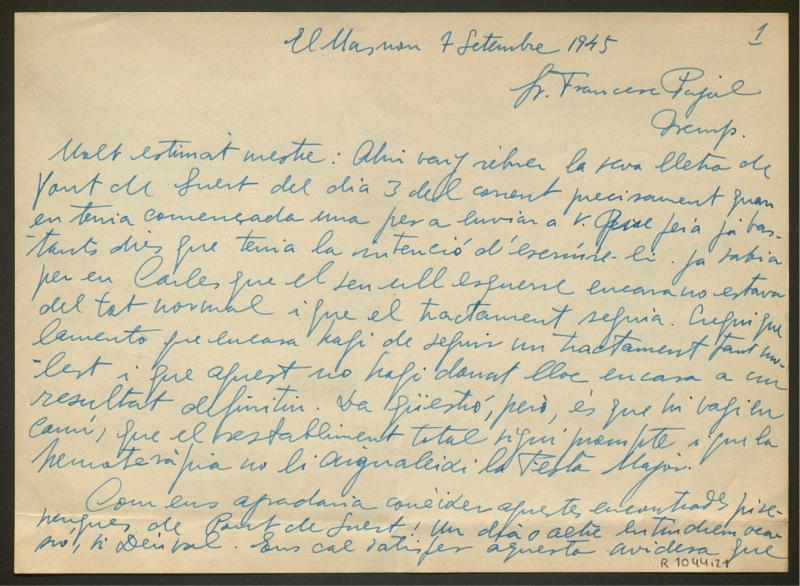 1
El Masnou 7 Setembre 1945
Sr. Francesc Pujol
Tremp.
Molt estimat mestre: Ahir vaig rebrer la seva lletra de
Pont de Suert del dia 3 del corrent precisament quan
en tenia començada una per a enviar a V. Que feia ja bas-
tants dies que tenia la intenció d'escriure-li. Ja sabia
per en Carles que el seu ull esquerre encara no estava
del tot normal i que el tractament seguia. Cregui que
lamento que encara hagi de seguir un tractament tant mo-
lest i que aquest no hagi donat lloc encara a un
resultat definitiu. Da qüestió, però, és que hi vagi en
camí, que el restabliment total sigui prompte i que la
hemoteràpia no li aigualeixi la Festa Major.
Com ens agradaria conèixer aquestes encontrades pire-
nenques de Pont de Suert! Un dia o altre en tindrem oca-
sió, si Déu vol. Ens cal satisfer aquesta avidesa que
R 1044:21